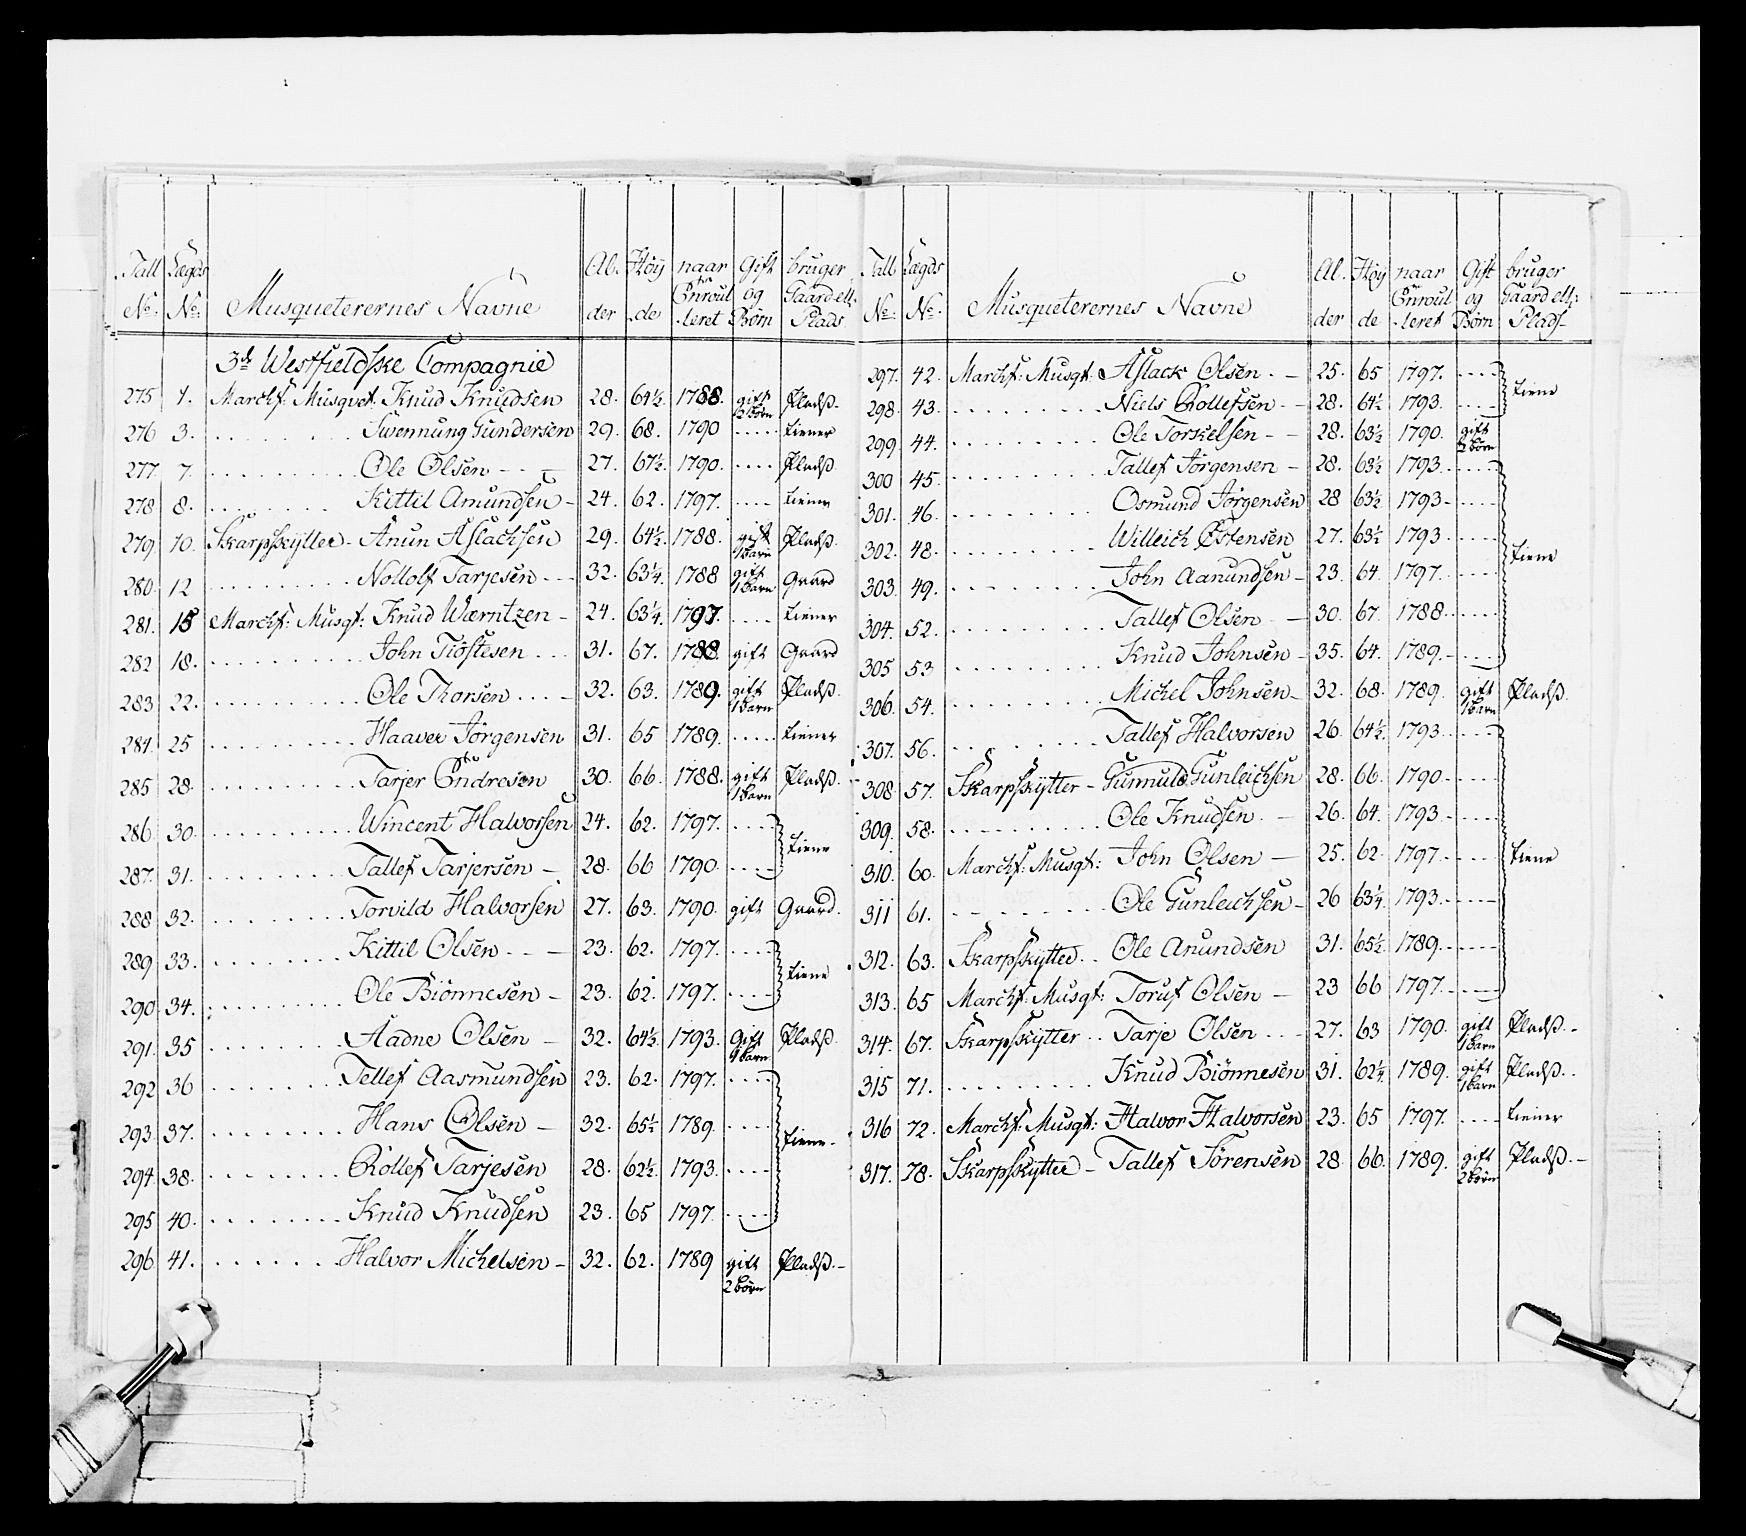 Tall No. Lægds No. Musqueterernes Navne Alder Høyde naar Enroulleret Gift og Børn bruger Gaard ell. Plads
3de Westfieldske Compagnie
275 1. Marchf: Musqvet: Knud Knudsen 28. 64½ 1788. gift 2 børn Pladß.
276 3. Swennung Gundersen 29. 68. 1790 tiener
277. 7. Ole Olsen 27. 67½. 1790. Pladß
278 8. Kittil Amundsen 24. 62. 1797. tiener
279 10. Skarpskÿtter Anun Aslachsen 29. 64½. 1788. gift 1 barn Pladß.
280. 12 Nollolf Tarjesen 32. 63¼. 1788 gift 1 barn Gaard
281. 15 Marchf: Musqt: Knud Wærntzen 24. 63¼. 1797. tiener
282 18. John Tiøstesen 31. 67. 1788. gift Gaard
283 22. Ole Thorsen 32. 63. 1789. gift 1 barn Pladß.
284. 25 Haaver Jörgensen 31. 65 1789. tiener
285 28. Tarjer Endresen 30. 66. 1788. gift 1 barn Pladß.
286 30. Wincent Halvorsen 24. 62. 1797. tiene
287. 31. Tallef Tarjersen 28. 66 1790.
288 32. Torvild Halvorsen 27. 63. 1790. gift Gaard.
289 33. Kittil Olsen 23. 62. 1797. tiene
290. 34. Ole Biönnesen 23. 62. 1797.
291. 35 Aadne Olsen 32. 64½. 1793. Gift 1 barn Pladß.
292 36 Tellef Aasmundsen 23. 62. 1797.
293 37. Hans Olsen 32. 65½ 1789. tiene
294 38. Rollef Tarjesen 28. 62½. 1793.
295 40. Knud Knudsen 23. 65 1797.
296 41. Halvor Michelsen 32. 62. 1789 gift 2 börn Pladß.
Tall No. Lægds No. Musqueterernes Navne Alder Høyde naar Enroulleret Gift og Børn bruger Gaard ell: Plads
297. 42. Marchf: Musqt: Aslack Olsen 25. 65 1797. tiene
298. 43. Niels Rollefsen 28. 64½ 1793.
299 44. Ole Torkelsen 28. 63½ 1790. gift 2 börn
300 45. Tallef Jörgensen 28. 63½ 1793.
301. 46. Osmund Jörgensen 28 63½ 1793
302. 48. Willeich Östensen 27. 63½ 1793 tiene
303. 49. John Aanundsen 23. 64. 1797.
304. 52. Tallef Olsen 30. 67. 1788.
305 53. Knud Johnsen 35. 64. 1789.
306. 54. Michel Johnsen 32. 68. 1789. gift 1 barn Pladß.
307. 56. Tallef Halvorsen 26. 64½. 1793.
308. 57. Skarpskÿtter Gunnuld Gunleichsen 28. 66. 1790.
309. 58. Ole Knudsen 26. 64. 1793.
310. 60. Marchf: Musqt: John Olsen 25. 62. 1797. tiene
311 61. Ole Gunleichsen 26 63¼. 1793.
312. 63. Skarpskÿtter Ole Anundsen 31. 65½. 1789.
313. 65 Marchf: Musqt: Toruf Olsen 23 66 1797.
314. 67. Skarpskÿtter Tarje Olsen 27. 63 1790. gift 1 barn Pladß.
315 71. Knud Biönnesen 31. 62¼. 1789. gift 1 barn Pladß.
316 72. Marchf: Musqt: Halvor Halvorsen 23. 65 1797. tiener
317. 78. Skarpskÿtter Tallef Sörensen 28. 66. 1789. gift 2 börn Pladß.